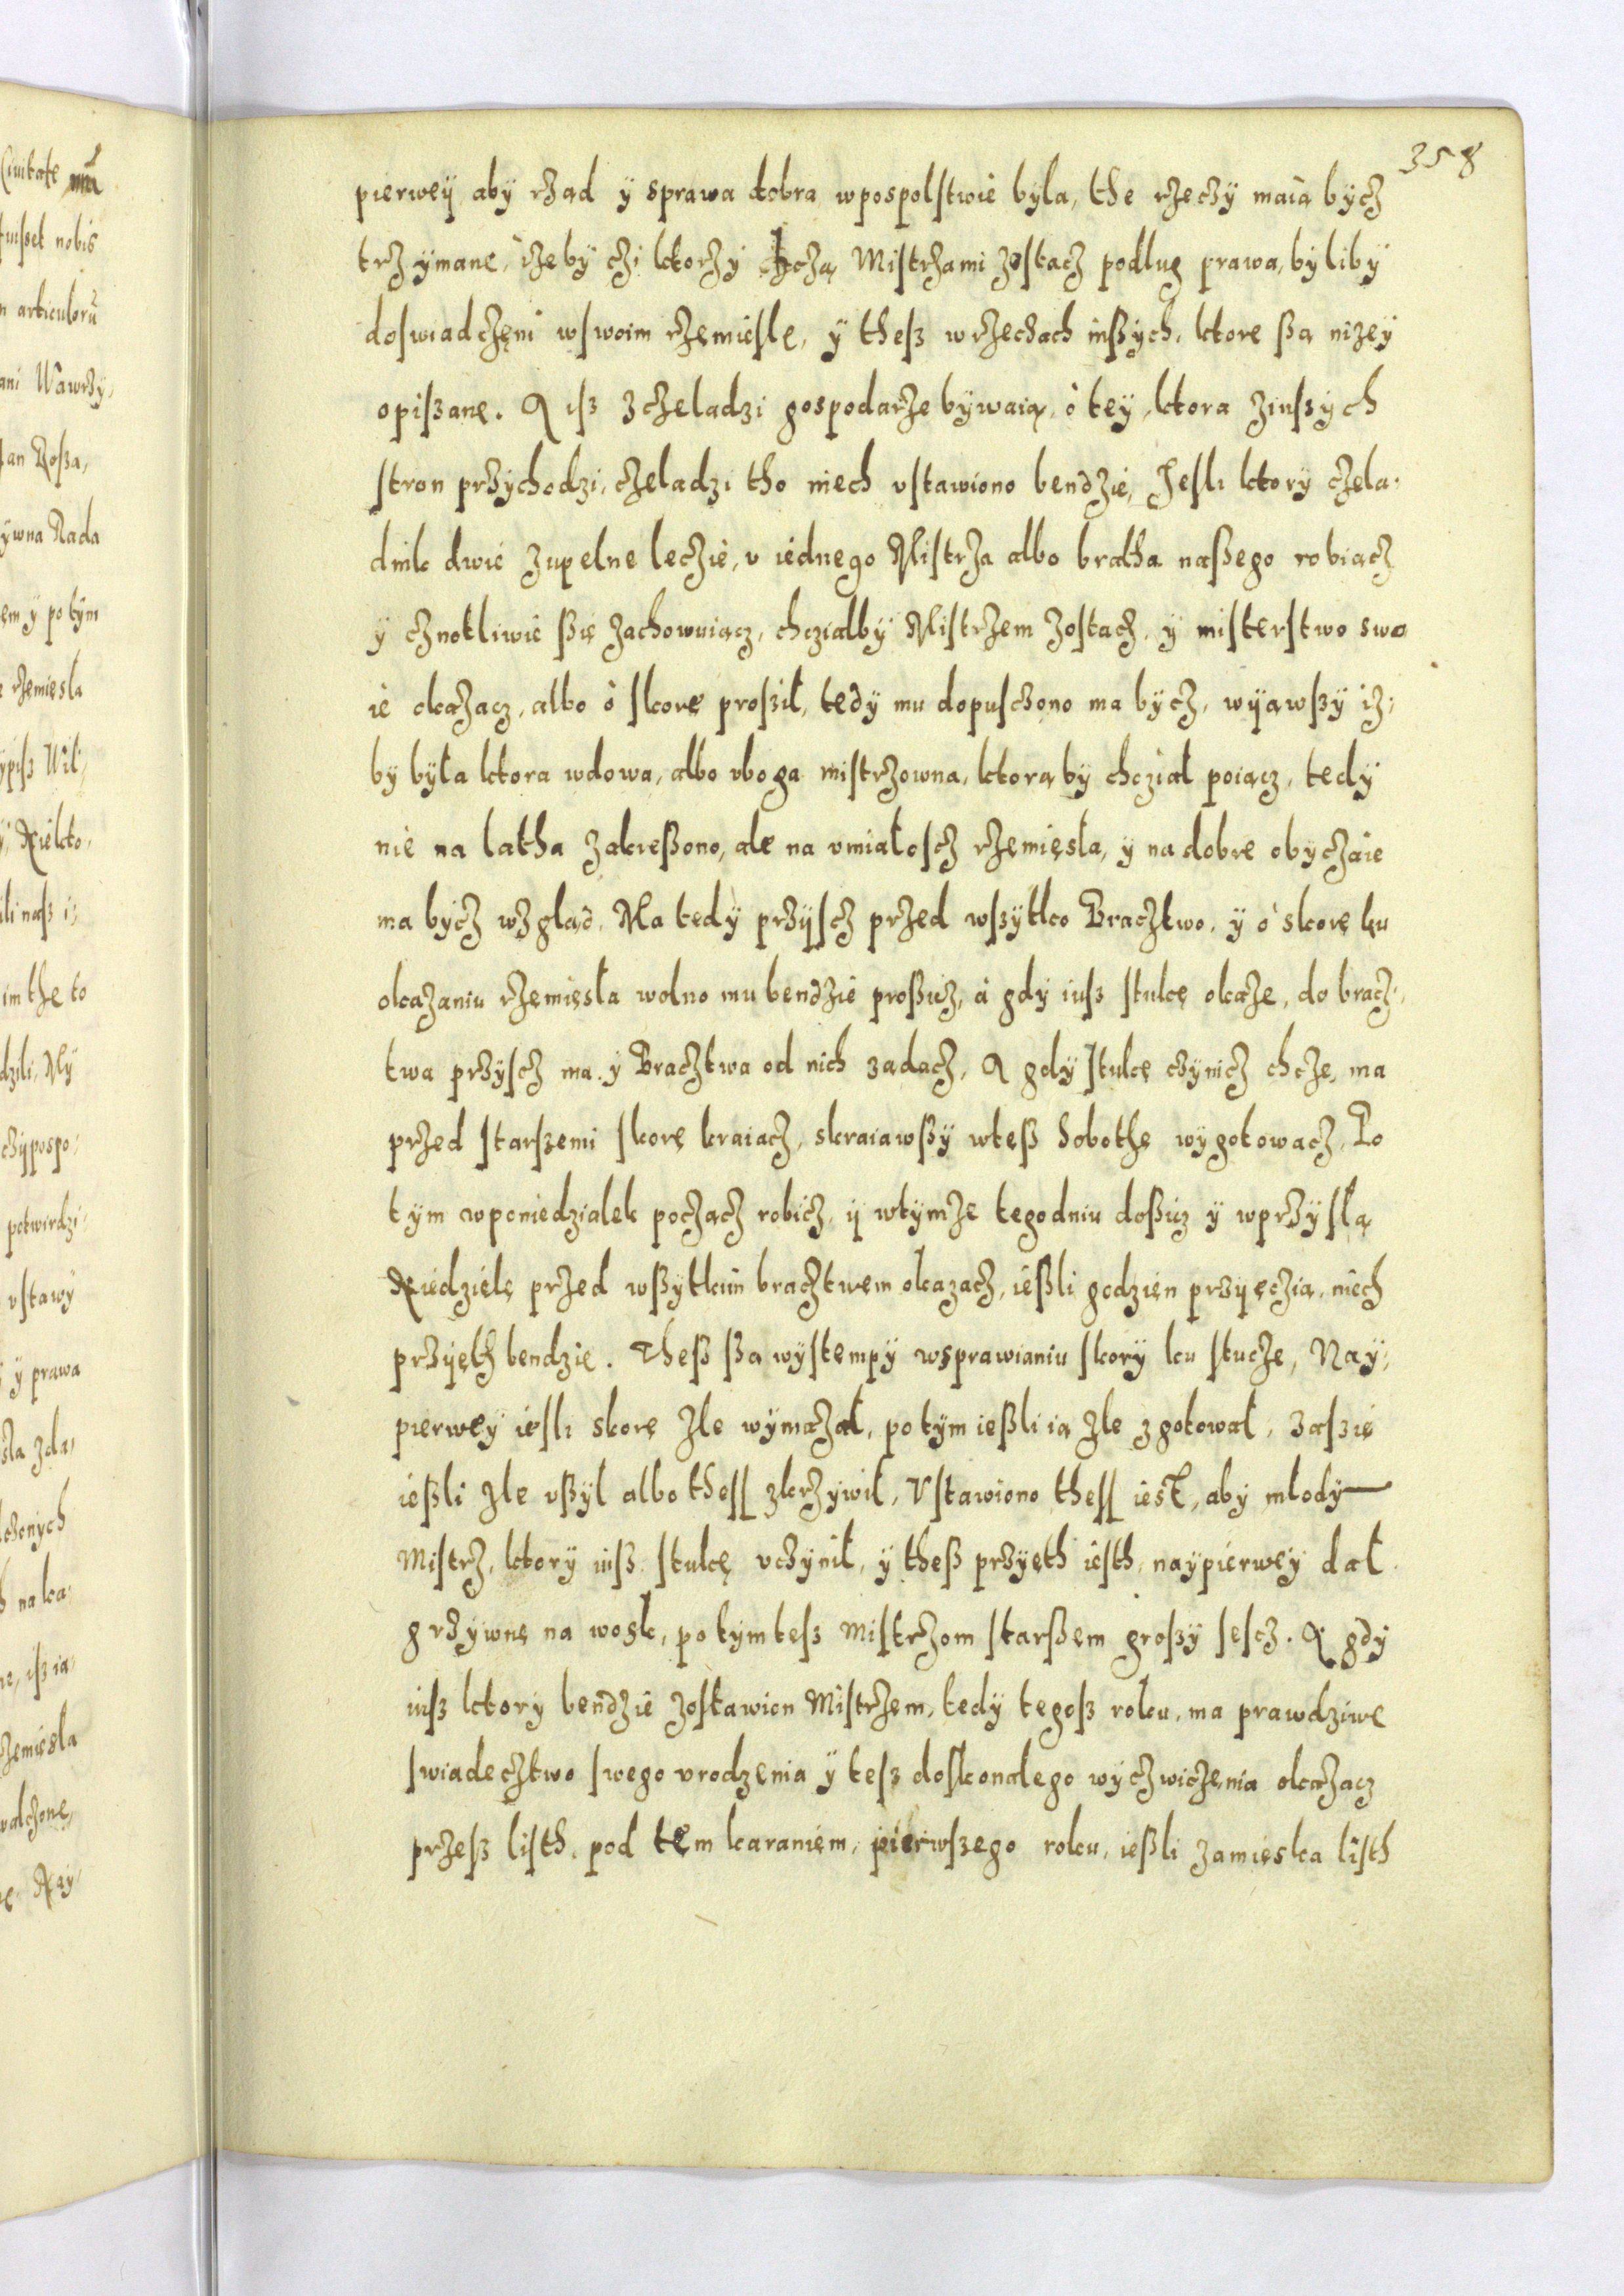 358
pierwey aby rżąd y sprawa dobra wpospolstwie byla, the rżeczy maią bycz
trzymane, iżeby czi ktorży chczą Mistrżami zostacz podlug prawa, byliby
doswiadcżeni wswoim rżemiesle, y thesz wrżecżach inszych, ktore są niżey
opisane. A isz z cżeladzi gospodarże bywaią, o tey, ktora zinszych
stron przychodzi, cżeladzi tho niech vstawiono bendzie, Jesli ktory cżela-
dnik dwie zupelne leczie, v iednego Mistrża albo bratha naszego robiącz
y cznotliwie się zachowuiącz, chczialby Mistrżem zostacz, y misterstwo swo
ie okazacz, albo o skorę prosił, tedy mu dopuscżono ma bycz, wyiąwszy iż-
by była ktora wdowa, albo vboga mistrżowna, ktorąby chczial poiącz, tedy
nie na latha zakreszono, ale na vmiałoscz rżemięsła, y na dobre obyczaie
ma bycz wzgląd. Ma tedy przyscz przed wszytko Bracztwo, y o skorę ku
okazaniu rżemięsła wolno mu bendzie prosicz, a gdy iusz stukę okaże, do bracz-
twa przyscz ma y Bracztwa od nich żadacz, A gdy stukę czynicz chcze, ma
przed starszemi skorę kraiacz, skraiawszy wtesz Sobothę wygotowacz, Po
tym wponiedzialek pocżacz robicz, y wtymże tegodniu doszicz y wprzyslą
Niedzielę przed wszytkim bracztwem okazacz, ieszli godzien przyęczia, niech
przyęth bendzie. Thesz są wystempy wsprawianiu skory ku stucze, Nay-
pierwey iesli skorę zle wymazał, potym ieszli ią zle zgotowal, zaszię
ieszli zle vszyl albo thess zkrzywil, Vstawiono thess iest, aby mlody
Mistrż, ktory iusz stukę vczynił, y thesz przyęth iesth, naypierwey dał
grzywnę na wosk, potym tesz Mistrżom starszem groszy sescz. A gdy
iusz ktory bendzie zostawion Mistrżem, tedy tegosz roku, ma prawdziwe
swiadecztwo swego vrodzenia y tesz doskonałego wyczwiczenia okazacz
przesz listh, pod tem karaniem, pierwszego roku, ieszli zamięska listh